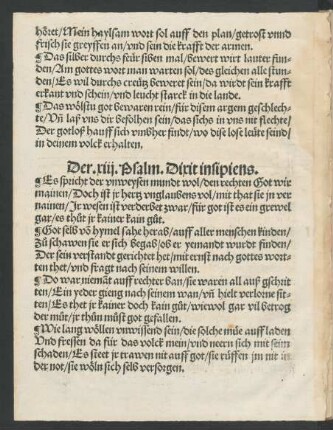 höret/Mein haylsam wort sol auff den plan/getrost vnnd
frisch sie greyffen an/vnd sein die krafft der armen.
¶Das silber durchs feür siben mal/bewert wirt lauter fun-
den/Am gottes wort man warten sol/des gleichen alle stun-
den/Es wil durchs creütz beweret sein/da wirdt sein krafft
erkant vnd schein/vnd leucht starck in die lande.
¶Das wölstu got bewaren rein/für disem argem geschlech-
te/Vñ laß vns dir befolhen sein/das sichs in vns nit flechte/
Der gotloß hauff sich vmbher findt/wo dise lose leüte seind/
in deinem volck erhalten.
Der .xiij. Psalm. Dixit insipiens.
¶Es spricht der vnweysen mundt wol/den rechten Got wir
mainen/Doch ist jr hertz vnglaubens vol/mit that sie jn ver
nainen/Jr wesen ist verderbet zwar/für got ist es ein grewel
gar/es thüt jr kainer kain güt.
¶Got selb võ hymel sahe herab/auff aller menschen kinden/
Zü schawen sie er sich begab/ob er yemandt wurdt finden/
Der sein verstandt gerichtet het/mit ernst nach gottes wort-
ten thet/vnd fragt nach seinem willen.
¶Do war niemãt auff rechter ban/sie waren all auß gschrit
ten/Ein yeder gieng nach seinem wan/vñ hielt verlorne sit-
ten/Es thet jr kainer doch kain güt/wiewol gar vil betrog
der müt/jr thün müst got gefallen.
¶Wie lang wöllen vnwissend sein/die solche müe auff laden
Vnd fressen da für das volck mein/vnd neern sich mit seim
schaden/Es steet jr trawen nit auff got/sie rüffen jm nit in
der not/sie wöln sich selb versorgen.